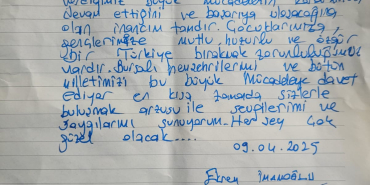 büyük
devam ettiğini ve başarıya ulaşacağına
olan inancım tamdır. Çocuklarımıza,
gençlerimize mutlu, huzurlu ve özgür
bir Türkiye bırakmak zorunluluğumuz
vardır. Bursalı hemşehrilerimi ve bütün
milletimizi bu büyük mücadeleye davet
ediyor en kısa zamanda sizlerle
buluşmak arzusu ile sevgilerimi ve
saygılarımı sunuyorum. Her şey çok
güzel olacak....
09.04.2025
Ekrem İMAMOĞLU